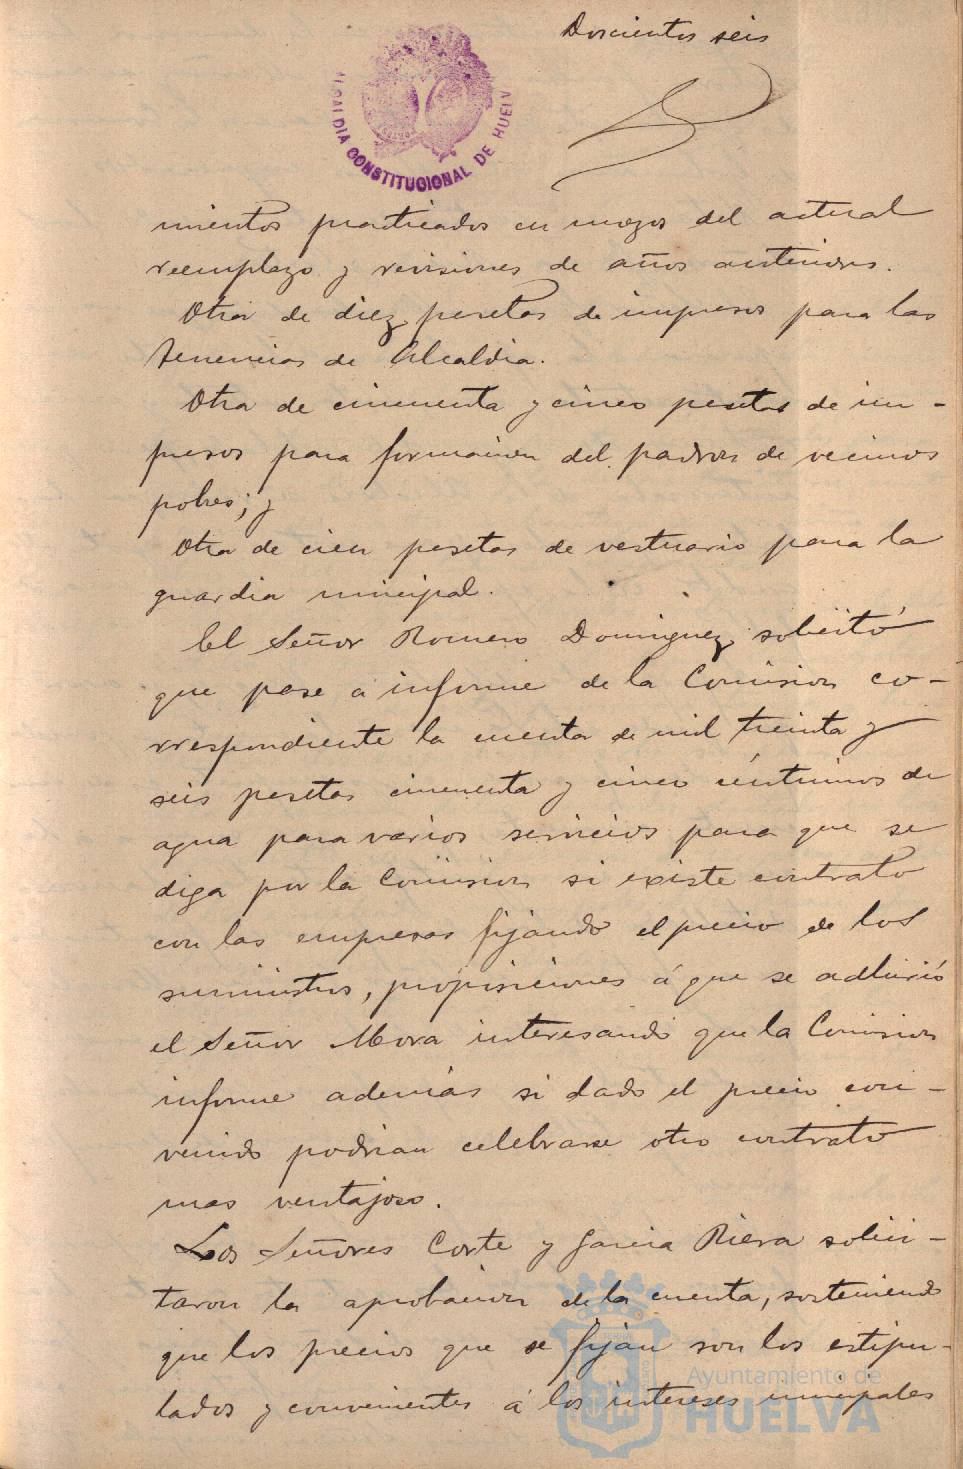 Doscientos seis
ALCALDIA CONSTITUCIONAL DE HUELV
mientos practicados en mozos del actual
reemplazo y revisiones de años anteriores.
Otra de diez pesetas de impresos para las
tenencias de Alcaldia.
Otra de cincuenta y cinco pesetas de im-
presos para formacion del padron de vecinos
pobres; y
Otra de cien pesetas de vestuario para la
guardia municipal.
El Señor Romero Dominguez solicitó
que pase á informe de la Comision co-
rrespondiente la cuenta de mil treinta y
seis pesetas cincuenta y cinco céntimos de
agua para varios servicios para que se
diga por la Comision si existe contrato
con las empresas fijando el precio de los
suministros, proposiciones á que se adhirió
el Señor Mora interesando que la Comision
informe además si dado el precio con-
venido podrian celebrarse otro contrato
mas ventajoso.
Los Señores Corte y Garcia Riera solici-
taron la aprobacion de la cuenta, sosteniendo
que los precios que se fijan son los estipu-
lados y convenientes á los intereses municipales
Ayuntamiento de
HUELVA